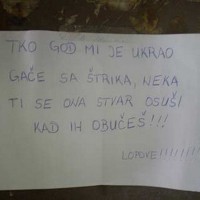 TKO GOD MI JE UKRAO
GAČE SA ŠTRIKA, NEKA
TI SE ONA STVAR OSUŠI
KAD IH OBUČEŠ!!!
LOPOVE!!!!!!!!